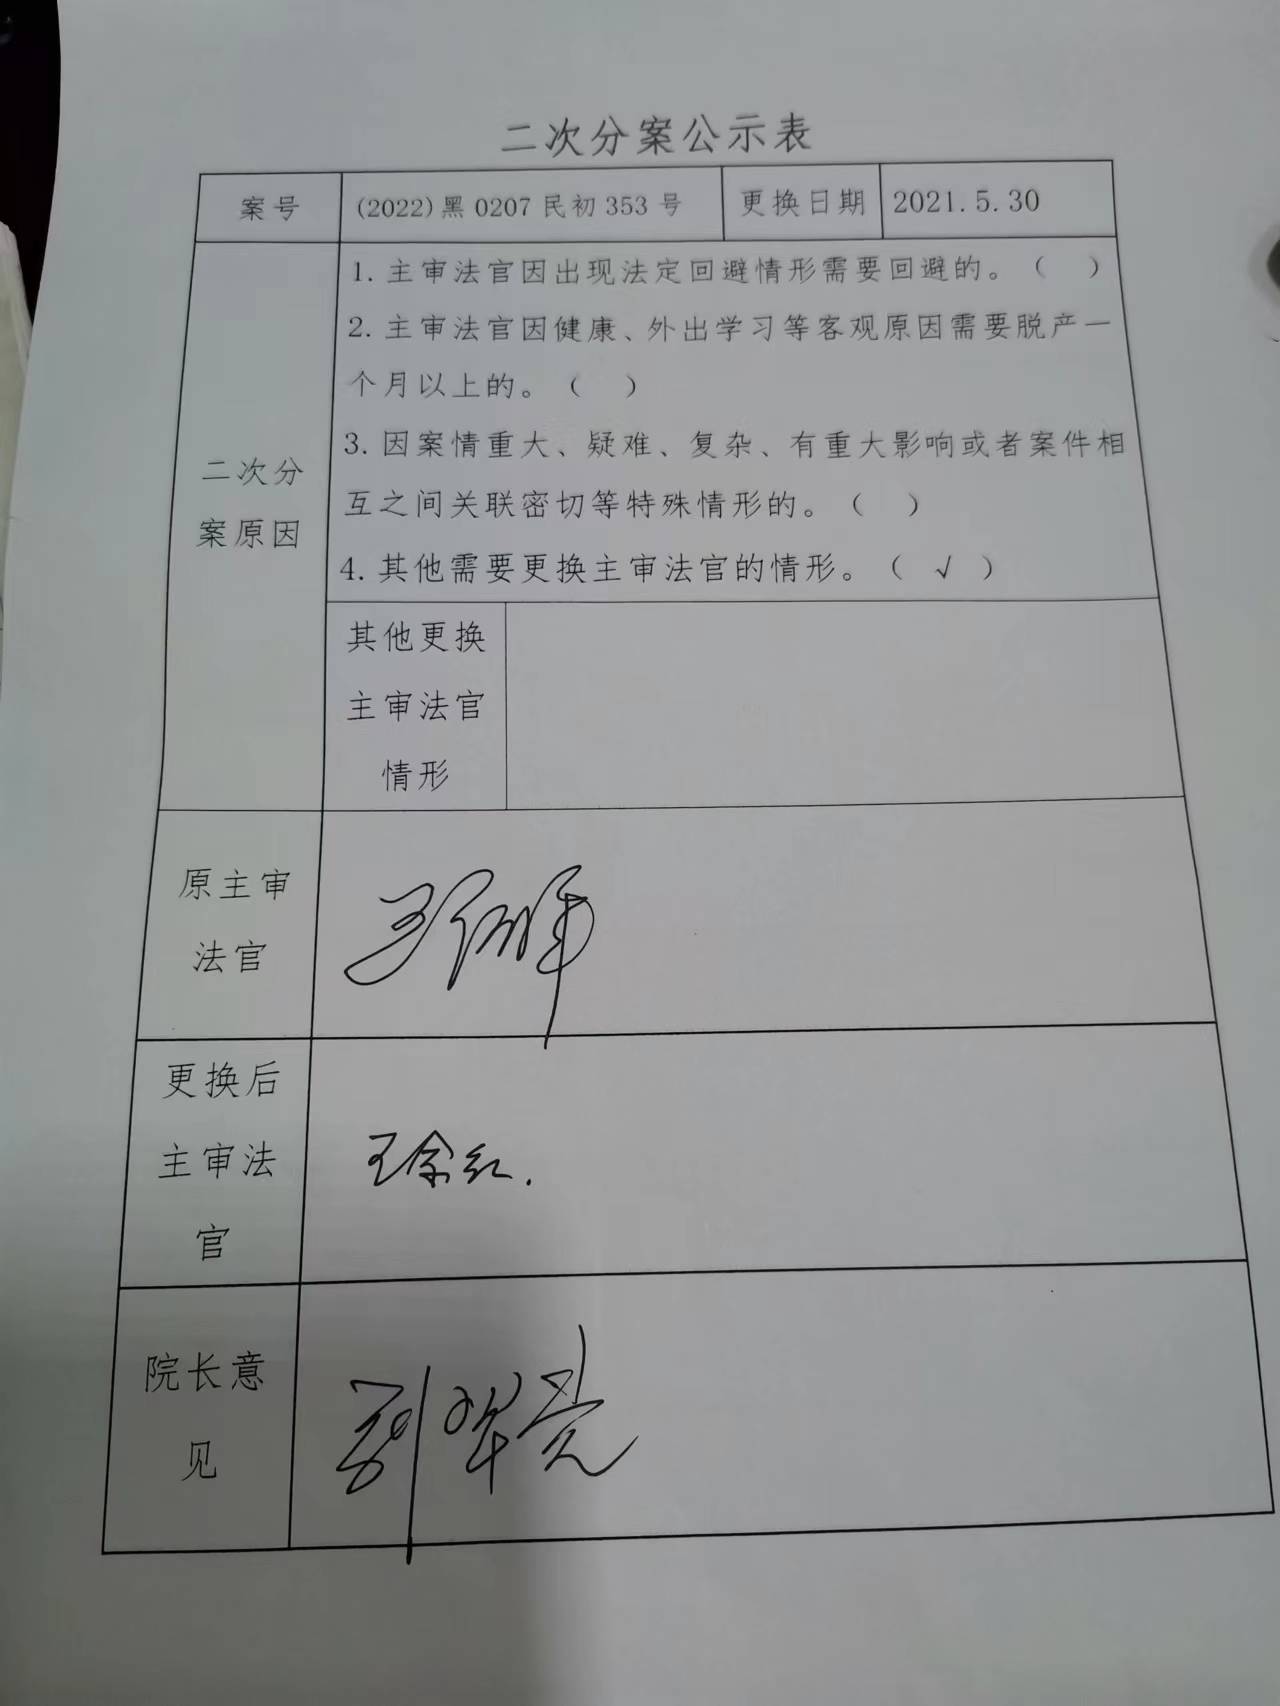 二次分案公示表
案号 (2022)黑0207民初353号 更换日期 2021.5.30
1.主审法官因出现法定回避情形需要回避的。（ ）
2.主审法官因健康、外出学习等客观原因需要脱产一
个月以上的。（ ）
3.因案情重大、疑难、复杂、有重大影响或者案件相
互之间关联密切等特殊情形的。（ ）
4.其他需要更换主审法官的情形。（ √ ）
二次分
案原因
其他更换
主审法官
情形
原主审
法官
更换后
主审法
官
王余红.
院长意
见